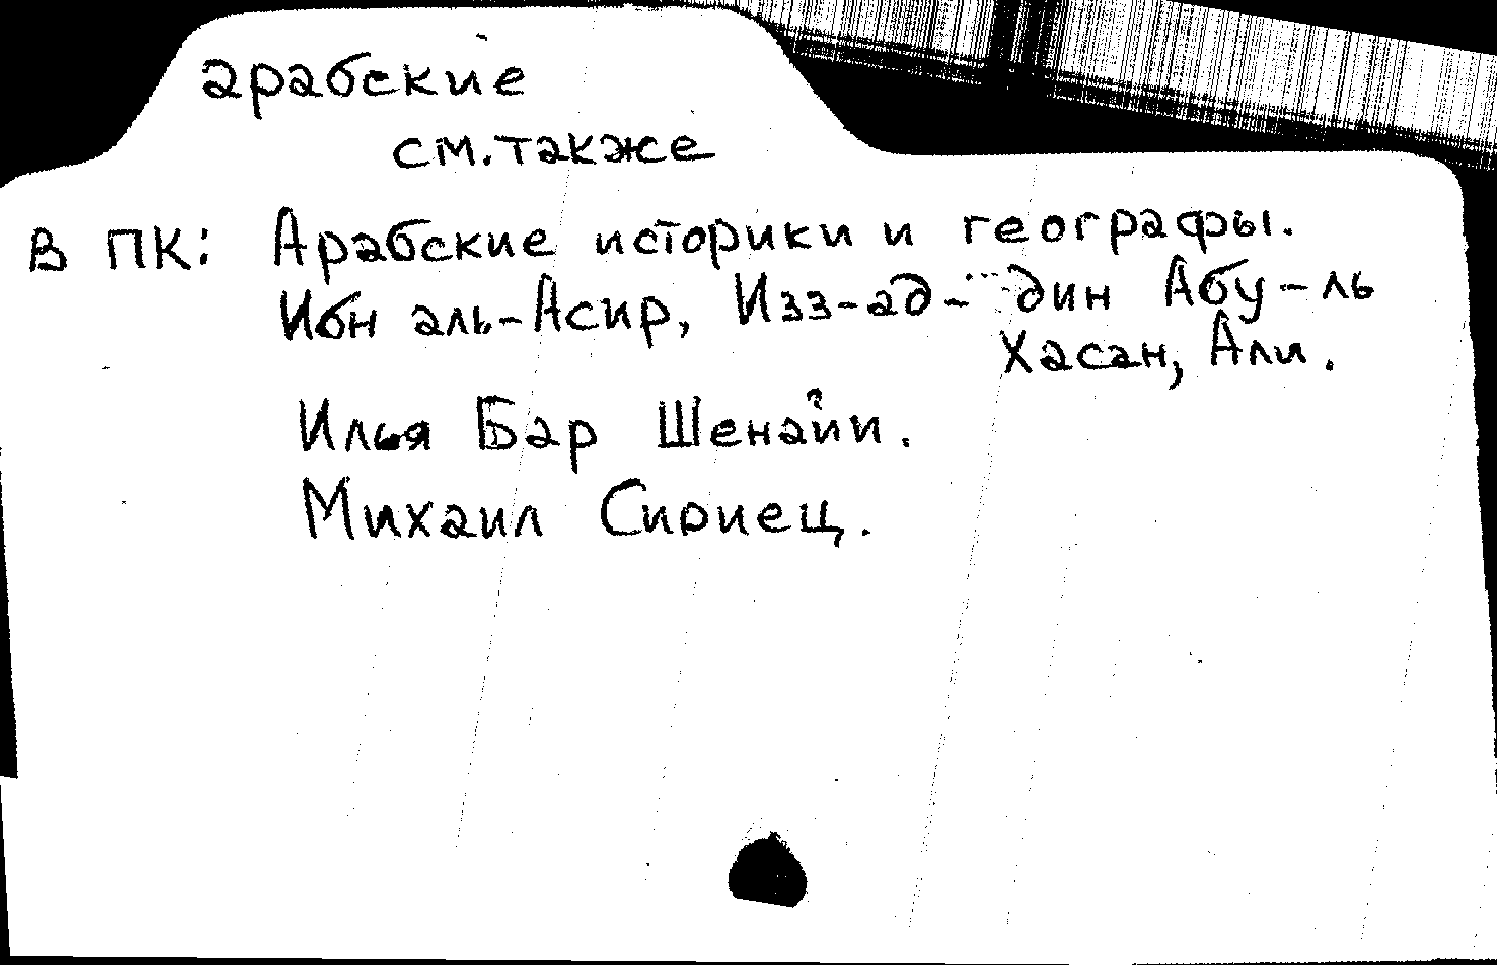 арабские
см. также
В ПК: Арабские историки и географы.
Ибн аль-Асир, Изз-ад-дин Абу-ль
Хасан, Али.
Илья Бар Шенайи.
Михаил Сириец.